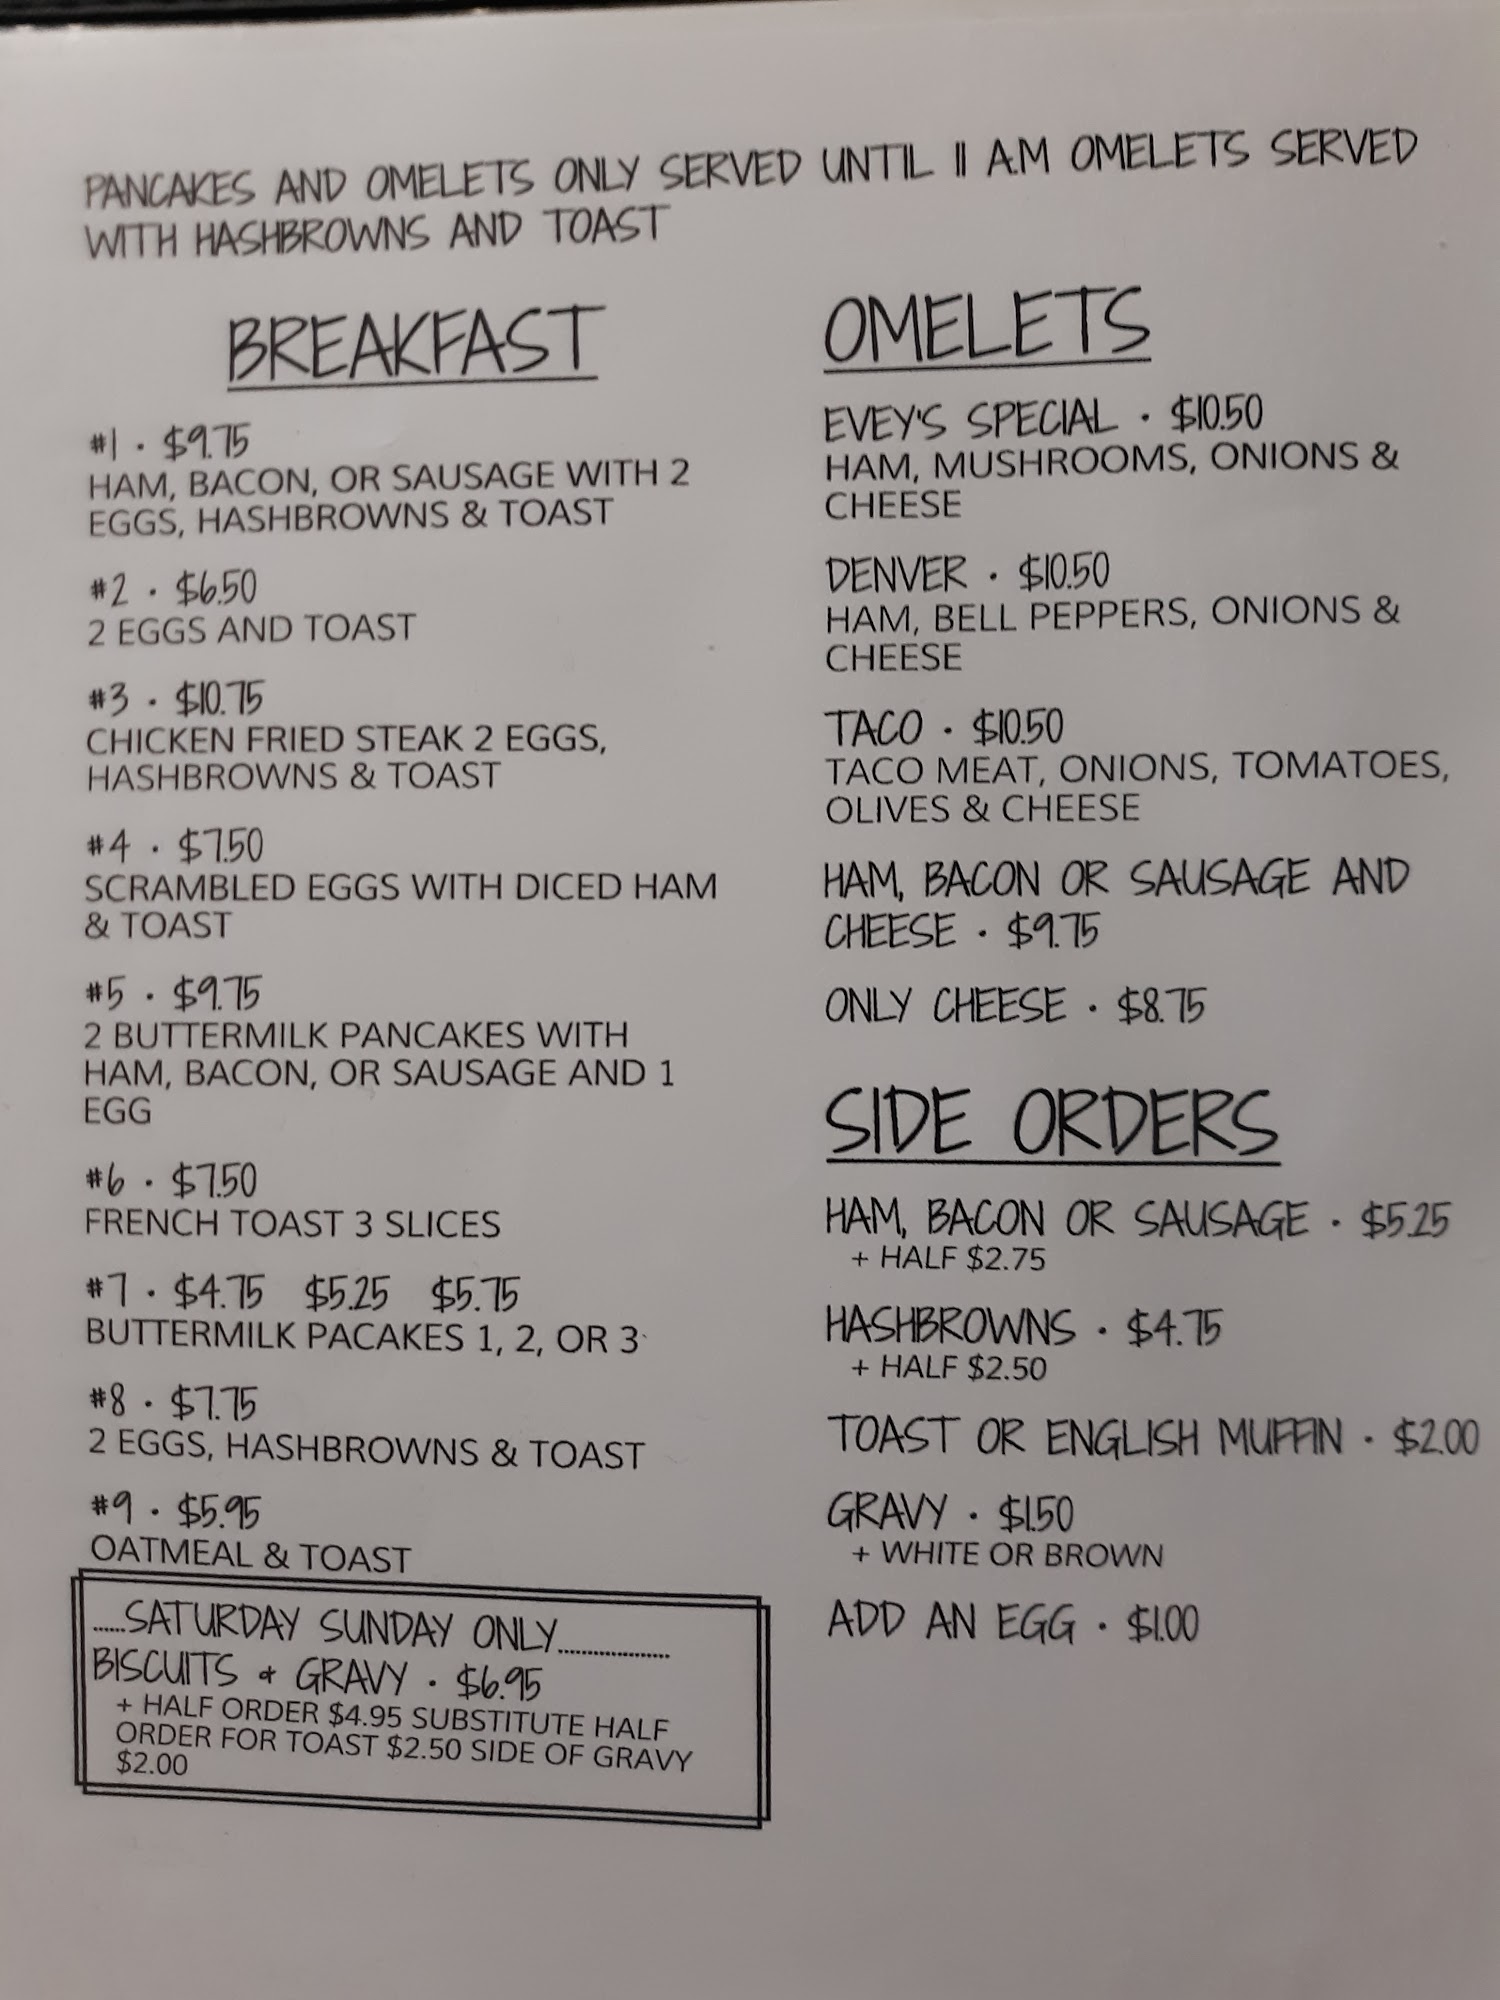 PANCAKES AND OMELETS ONLY SERVED UNTIL 11 A.M OMELETS SERVED
WITH HASHBROWNS AND TOAST
BREAKFAST
#1 · $9.75
HAM, BACON, OR SAUSAGE WITH 2
EGGS, HASHBROWNS & TOAST
#2 · $6.50
2 EGGS AND TOAST
#3 · $10.75
CHICKEN FRIED STEAK 2 EGGS,
HASHBROWNS & TOAST
#4 · $7.50
SCRAMBLED EGGS WITH DICED HAM
& TOAST
#5 · $9.75
2 BUTTERMILK PANCAKES WITH
HAM, BACON, OR SAUSAGE AND 1
EGG
#6 · $7.50
FRENCH TOAST 3 SLICES
#7 · $4.75 $5.25 $5.75
BUTTERMILK PACAKES 1, 2, OR 3
#8 · $7.75
2 EGGS, HASHBROWNS & TOAST
#9 · $5.95
OATMEAL & TOAST
......SATURDAY SUNDAY ONLY.................
BISCUITS & GRAVY · $6.95
+ HALF ORDER $4.95 SUBSTITUTE HALF
ORDER FOR TOAST $2.50 SIDE OF GRAVY
$2.00
OMELETS
EVEY'S SPECIAL · $10.50
HAM, MUSHROOMS, ONIONS &
CHEESE
DENVER · $10.50
HAM, BELL PEPPERS, ONIONS &
CHEESE
TACO · $10.50
TACO MEAT, ONIONS, TOMATOES,
OLIVES & CHEESE
HAM, BACON OR SAUSAGE AND
CHEESE · $9.75
ONLY CHEESE · $8.75
SIDE ORDERS
HAM, BACON OR SAUSAGE · $5.25
+ HALF $2.75
HASHBROWNS · $4.75
+ HALF $2.50
TOAST OR ENGLISH MUFFIN · $2.00
GRAVY · $1.50
+ WHITE OR BROWN
ADD AN EGG · $1.00